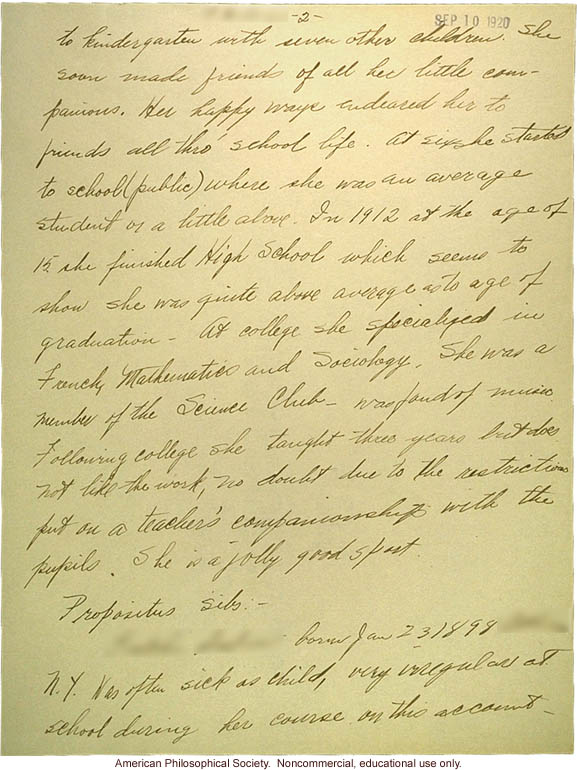 -2-
SEP 10 1920
to kindergarten with seven other children. She
soon made friends of all her little com-
panions. Her happy ways endeared her to
friends all thro school life. At six she started
to school (public) where she was an average
student or a little above. In 1912 at the age of
15 she finished High School which seems to
show she was quite above average as to age of
graduation - At college she specialized in
French, Mathematics and Sociology. She was a
member of the Science Club - was fond of music.
Following college she taught three years but does
not like the work, no doubt due to the restrictions
put on a teacher's companionship with the
pupils. She is a "jolly good sport.
Propositus Sibs:-
born Jan 23 1898
N.Y. Was often sick as child, very irregular at
school during her course on this account -
American Philosophical Society. Noncommercial, educational use only.